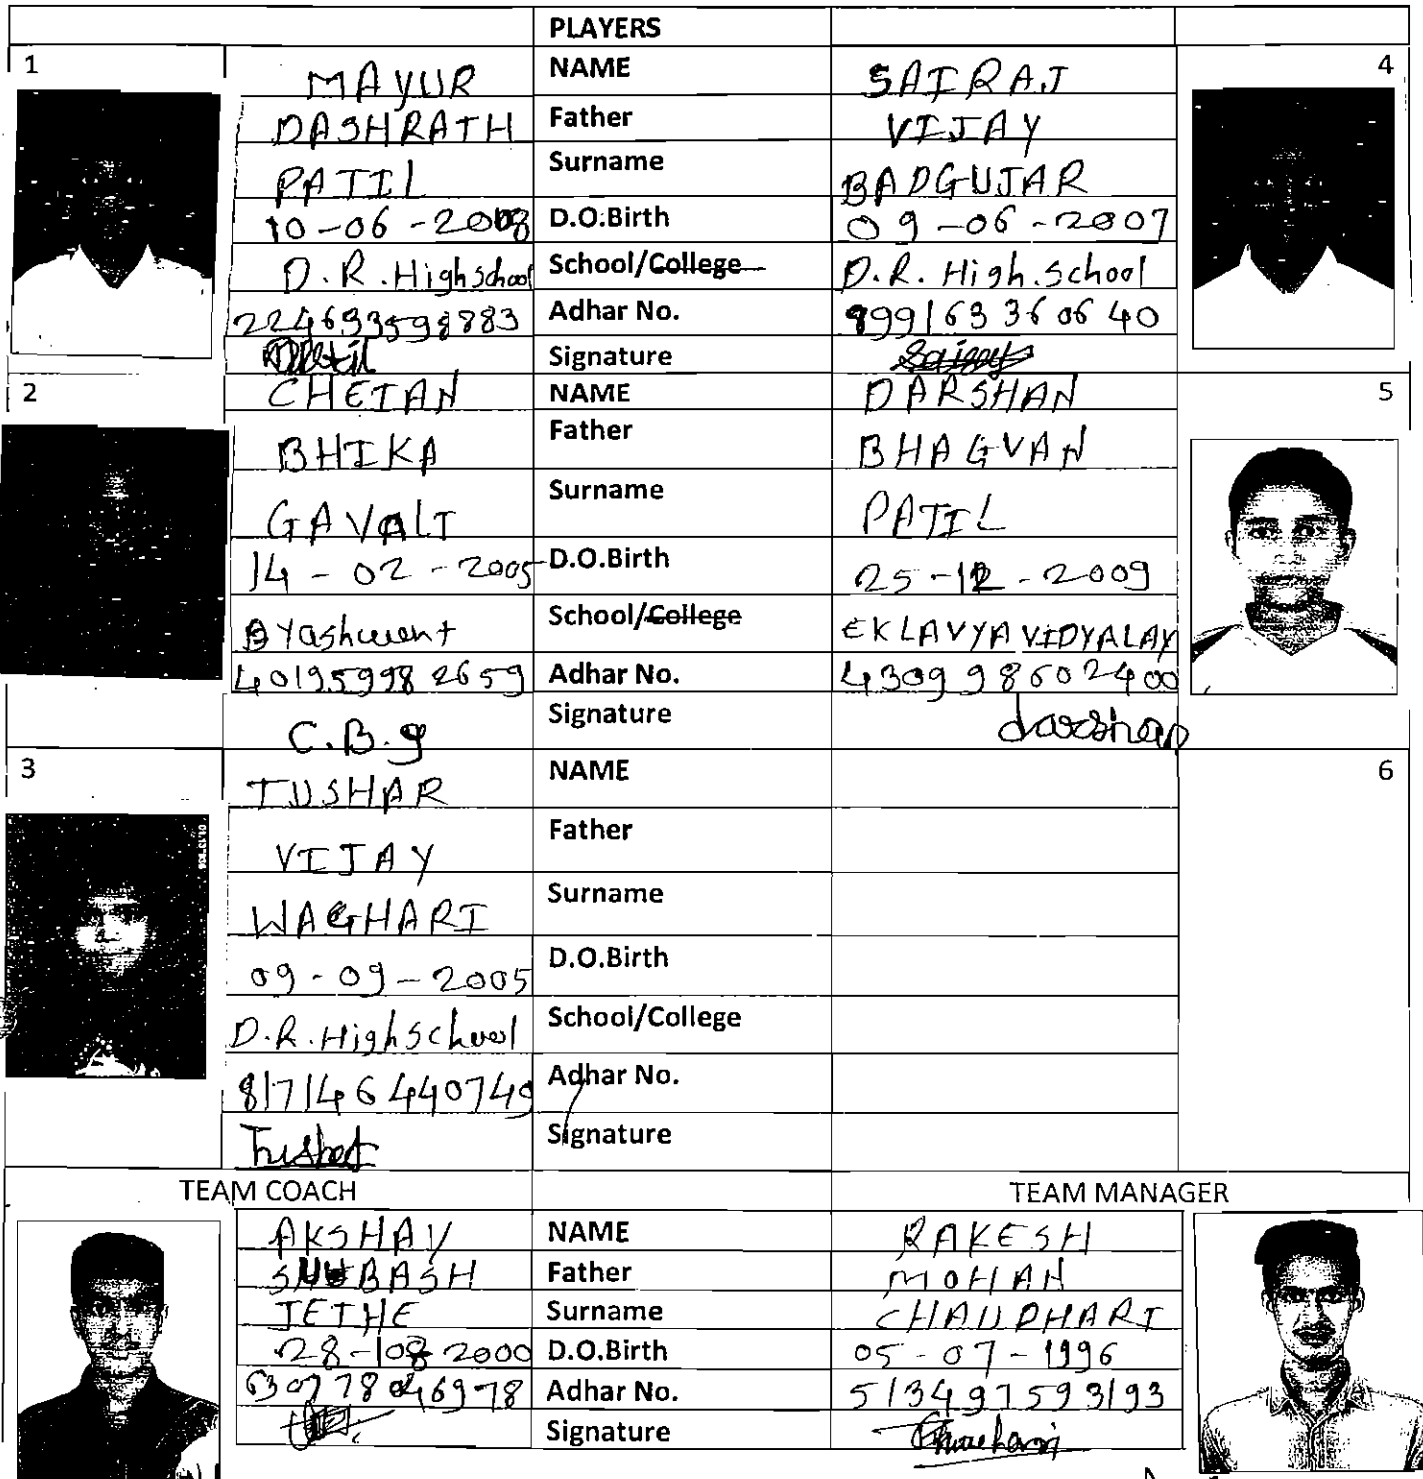 PLAYERS
1 MAYUR NAME SAIRAJ 4
DASHRATH Father VIJAY
PATIL Surname BADGUJAR
10-06-2008 D.O.Birth 09-06-2007
D.R.High school School/College D.R. High.school
Adhar No. 999163360640
Signature
2 CHETAN NAME DARSHAN 5
BHIKA Father BHAGVAN
GAVALI Surname PATIL
14-02-2005 D.O.Birth 25-12-2009
Yashwent School/College EKLAVYA VIDYALAY
401959982659 Adhar No. 430998602400
C.B.g Signature darshan
3 TUSHAR NAME 6
VIJAY Father
WAGHARI Surname
09-09-2005 D.O.Birth
D.R.High school School/College
817146440749 Adhar No.
Signature
TEAM COACH TEAM MANAGER
AKSHAY NAME RAKESH
SUBASH Father MOHAN
TETHE Surname CHAUDHARI
28-08-2000 D.O.Birth 05-07-1996
Adhar No. 513497593193
Signature